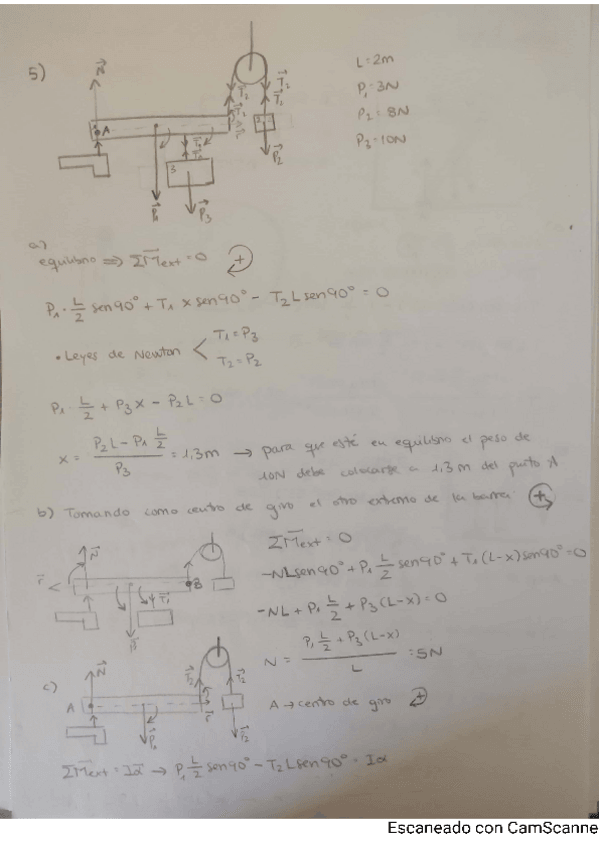 5)
N
A
T2
T2
T1
T1
P2
3
P1
P3
L=2m
P1=3N
P2=8N
P3=10N
a)
equilibrio ⇒ ΣMext=0 +
P1·L/2 sen90°+T1 x sen90°- T2 L sen90°=0
• Leyes de Newton < T1=P3
T2=P2
P1·L/2 + P3x - P2L=0
x = (P2L-P1 L/2)/P3 = 1,3m → para que esté en equilibrio el peso de
10N debe colocarse a 1,3m del punto A
b) Tomando como centro de giro el otro extremo de la barra: +
N
B
T1
P
ΣMext=0
-NLsen90°+P1 L/2 sen90°+T1(L-x)sen90°=0
-NL+P1 L/2+P3(L-x)=0
N = (P1 L/2+P3(L-x))/L = 5N
c)
N
A
T2
T2
P1
P2
A→centro de giro +
ΣMext=Iα → P1 L/2 sen90°-T2Lsen90°=Iα
Escaneado con CamScanne